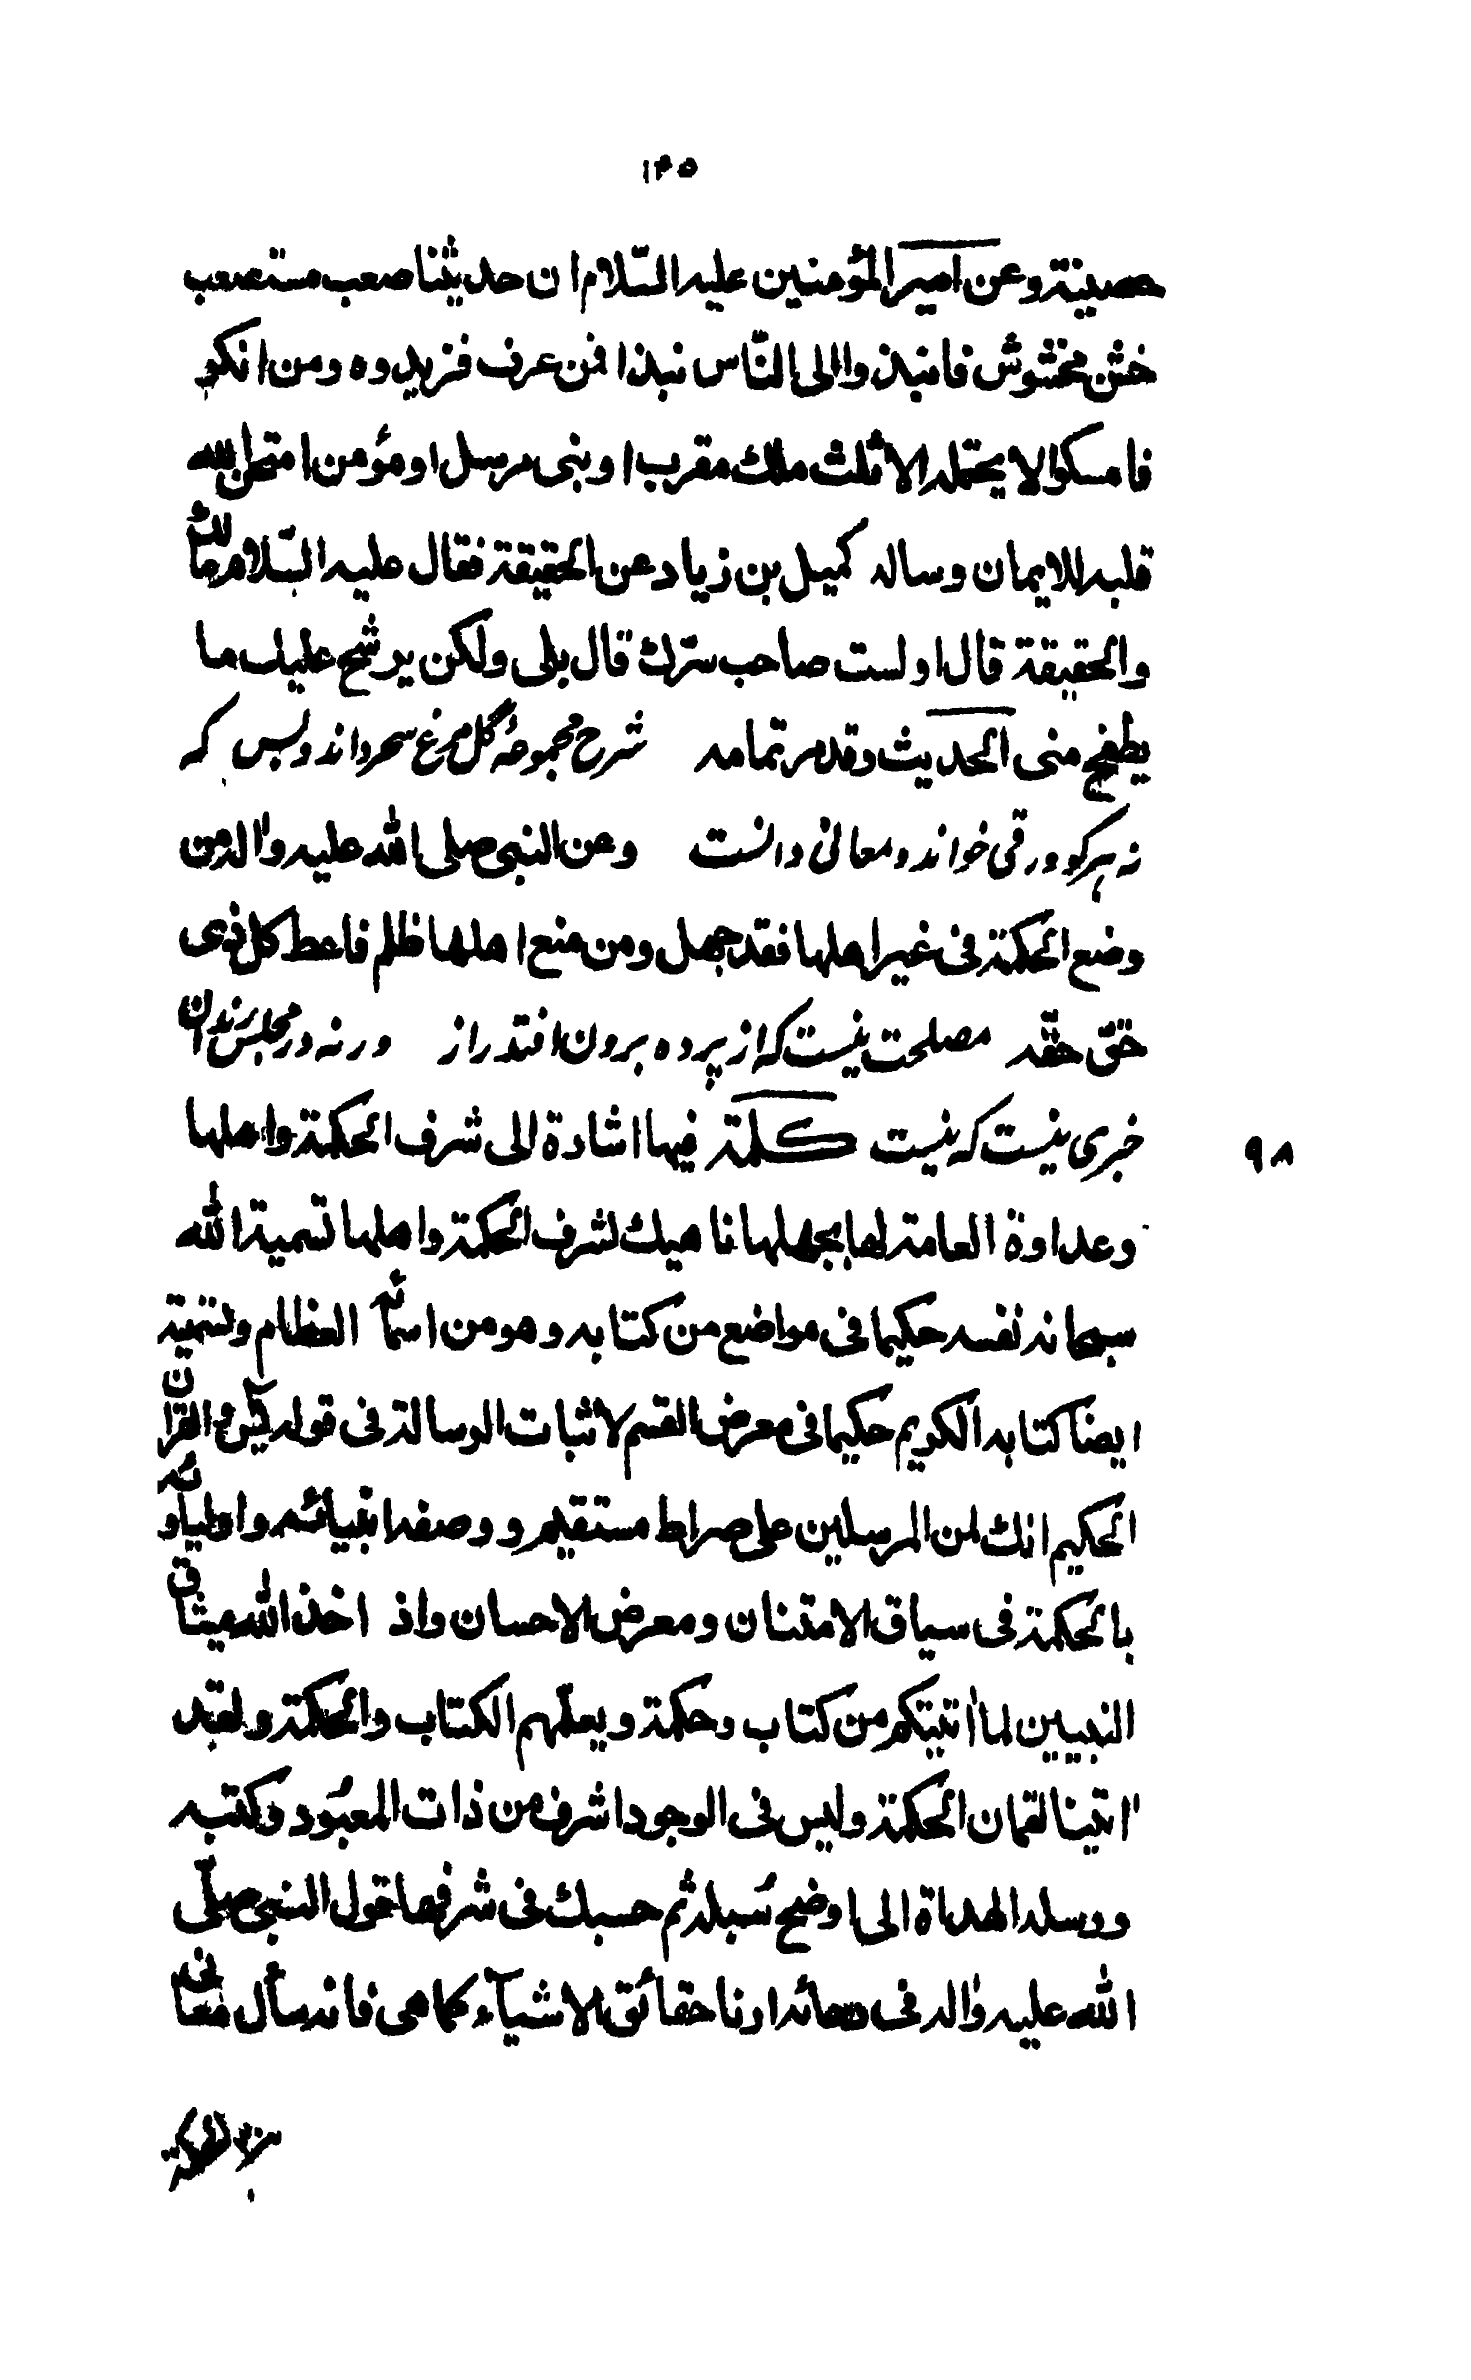 ١٣٥
حصينة وعن امير المؤمنين عليه السّلام ان حديثنا صعب مستصعب
خشن مخشوش فانبذوا الى النّاس نبذا فمن عرف فزيدوه ومن انكر
فامسكوا لا يحتمله الا ثلث ملك مقرب او نبى مرسل او مؤمن امتحن الله
قلبه للايمان وساله كميل بن زياد عن الحقيقة فقال عليه السّلام مالك
والحقيقة قال اولست صاحب سرّك قال بلى ولكن يرشح عليك ما
يطفح منى الحديث وقد مر تمامه شرح مجموعهٔ گل مرغ سحر داند وبس که
نه هر کو ورقی خواند ومعانی دانست وعن النبى صلى الله عليه واله من
وضع الحكمة فى غير اهلها فقد جهل ومن منع اهلها ظلم فاعط كل ذى
حقّ حقّه مصلحت نیست که از پرده برون افتد راز ورنه در مجلس رندان
خبری نیست که نیست كلمة فيها اشارة الى شرف الحكمة واهلها
٩٨
وعداوة العامة لها بجهلها ناهيك لشرف الحكمة واهلها تسمية الله
سبحانه نفسه حكيما فى مواضع من كتابه وهو من اسمائه العظام وتسمية
ايضا كتابه الكريم حكيما فى معرض القسم لاثبات الرسالة فى قوله يس والقران
الحكيم انك لمن المرسلين على صراط مستقيم ووصفه انبيائه واوليائه
بالحكمة فى سياق الامتنان ومعرض الاحسان واذ اخذ الله ميثاق
النبيين لما اتيتكم من كتاب وحكمة ويعلّمهم الكتاب والحكمة ولقد
اتينا لقمان الحكمة وليس فى الوجود اشرف من ذات المعبود وكتبه
ورسله الهداة الى اوضح سُبله ثم حسبك فى شرفها قول النبى صلّى
الله عليه واله فى دعائه ارنا حقائق الاشيآء كما هى فانه سأل معانى